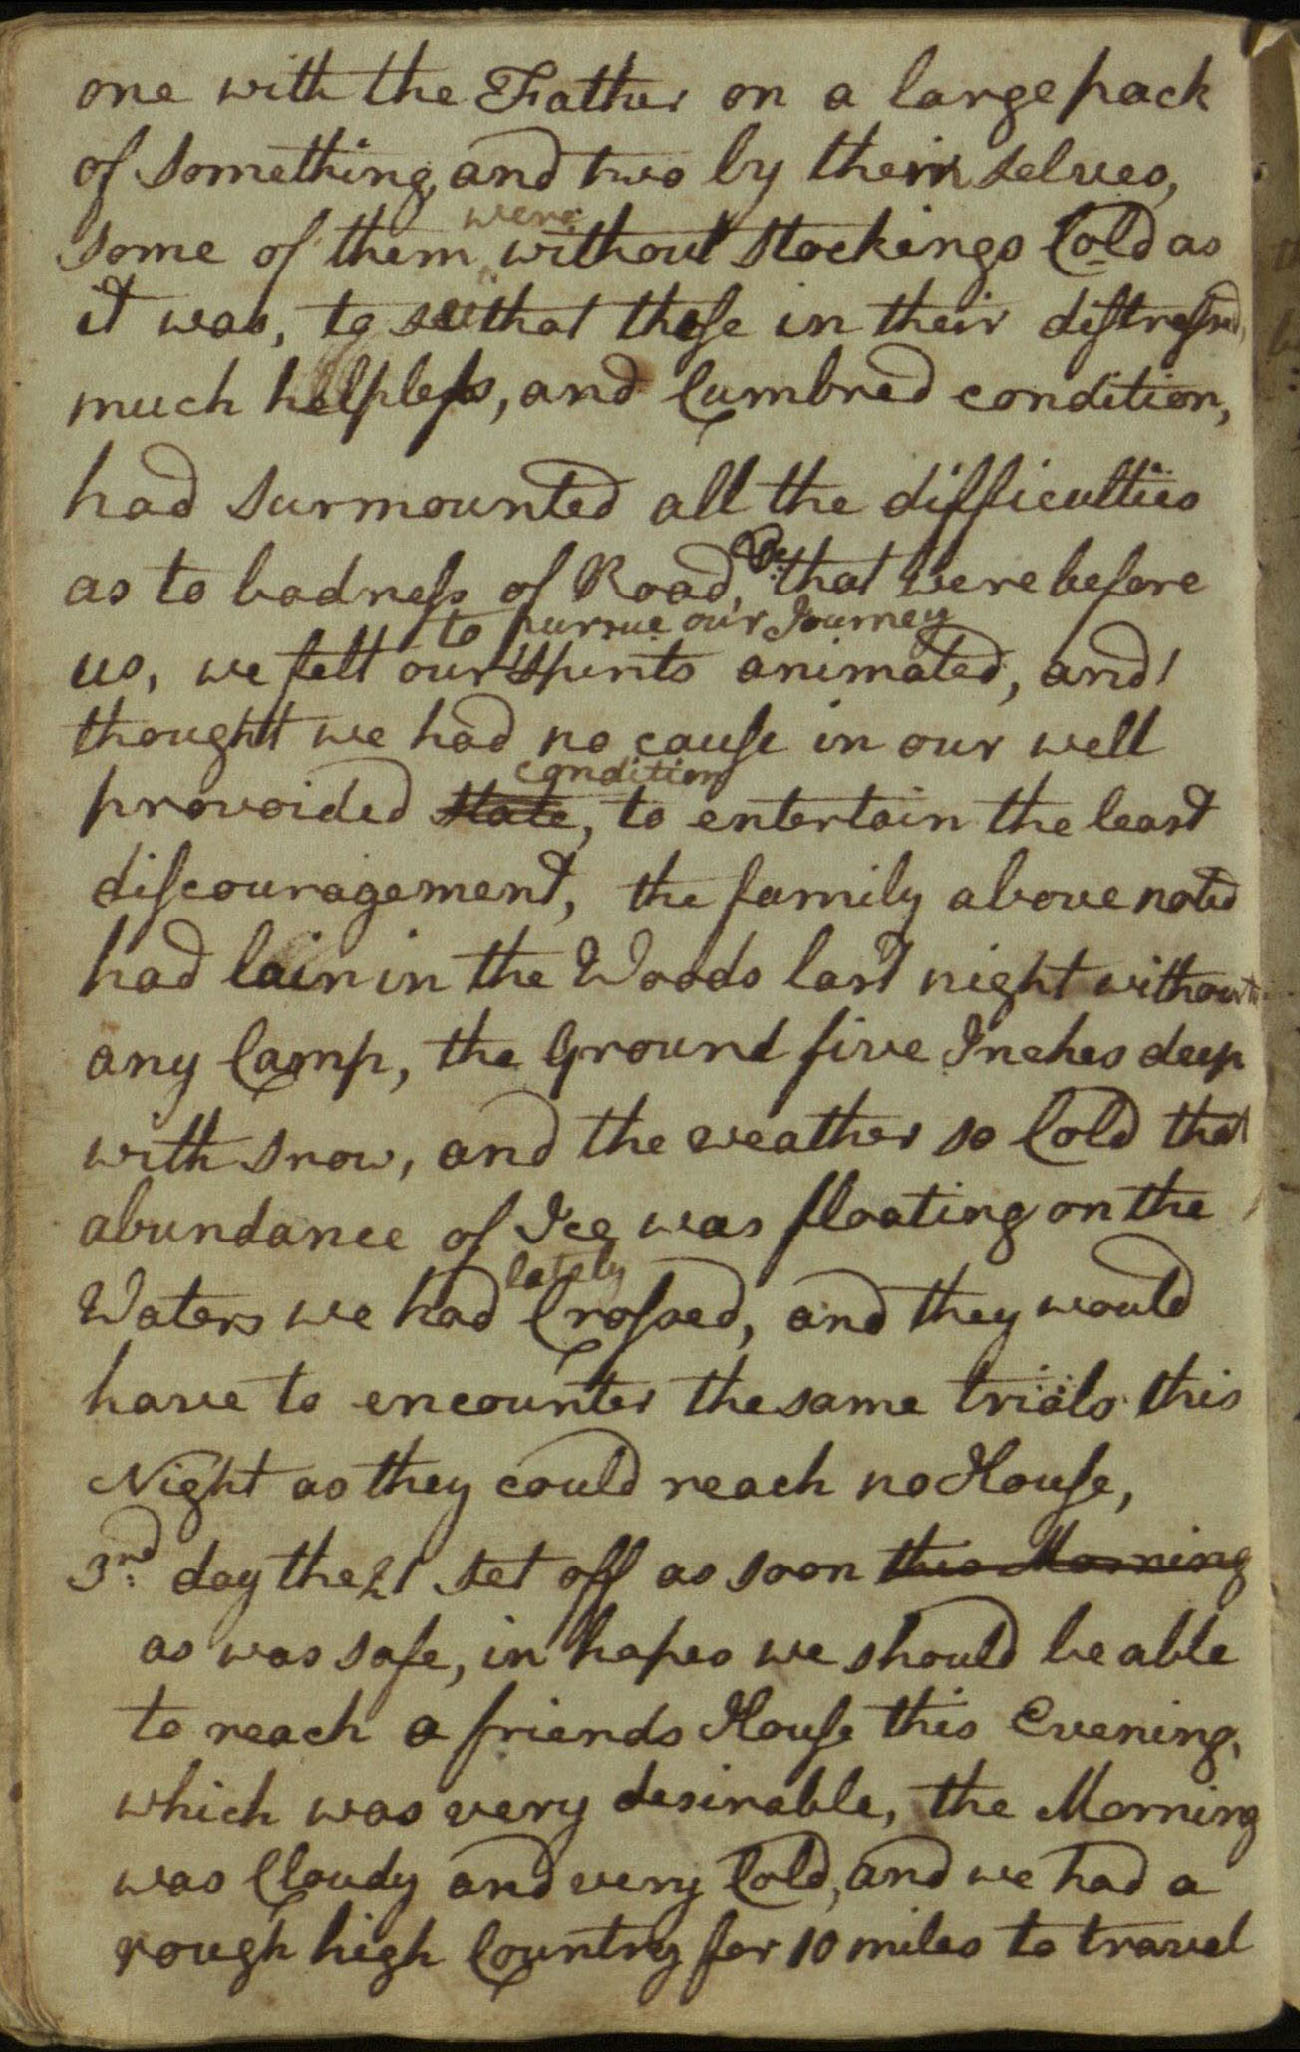 one with the Father on a large pack
of something, and two by themselves,
were
some of them without stockings Cold as
it was, to see that those in their distressed,
much helpless, and Cumbred condition,
had surmounted all the difficulties
as to badness of Road, &c: that were before
to pursue our Journey
us, we felt our spirits animated, and
thought we had no cause in our well
condition
provoided state, to entertain the least
discouragement, the family above noted
had lain in the Woods last night without
any Camp, the Ground five Inches deep
with snow, and the weather so Cold that
abundance of Ice was floating on the
lately
Waters we had Crossed, and they would
have to encounter the same trials this
Night as they could reach no House,
3rd: day the 21 set off as soon this Morning
as was safe, in hopes we should be able
to reach a friends House this Evening,
which was very desirable, the Morning
was Cloudy and very Cold, and we had a
rough high Country for 10 miles to travel